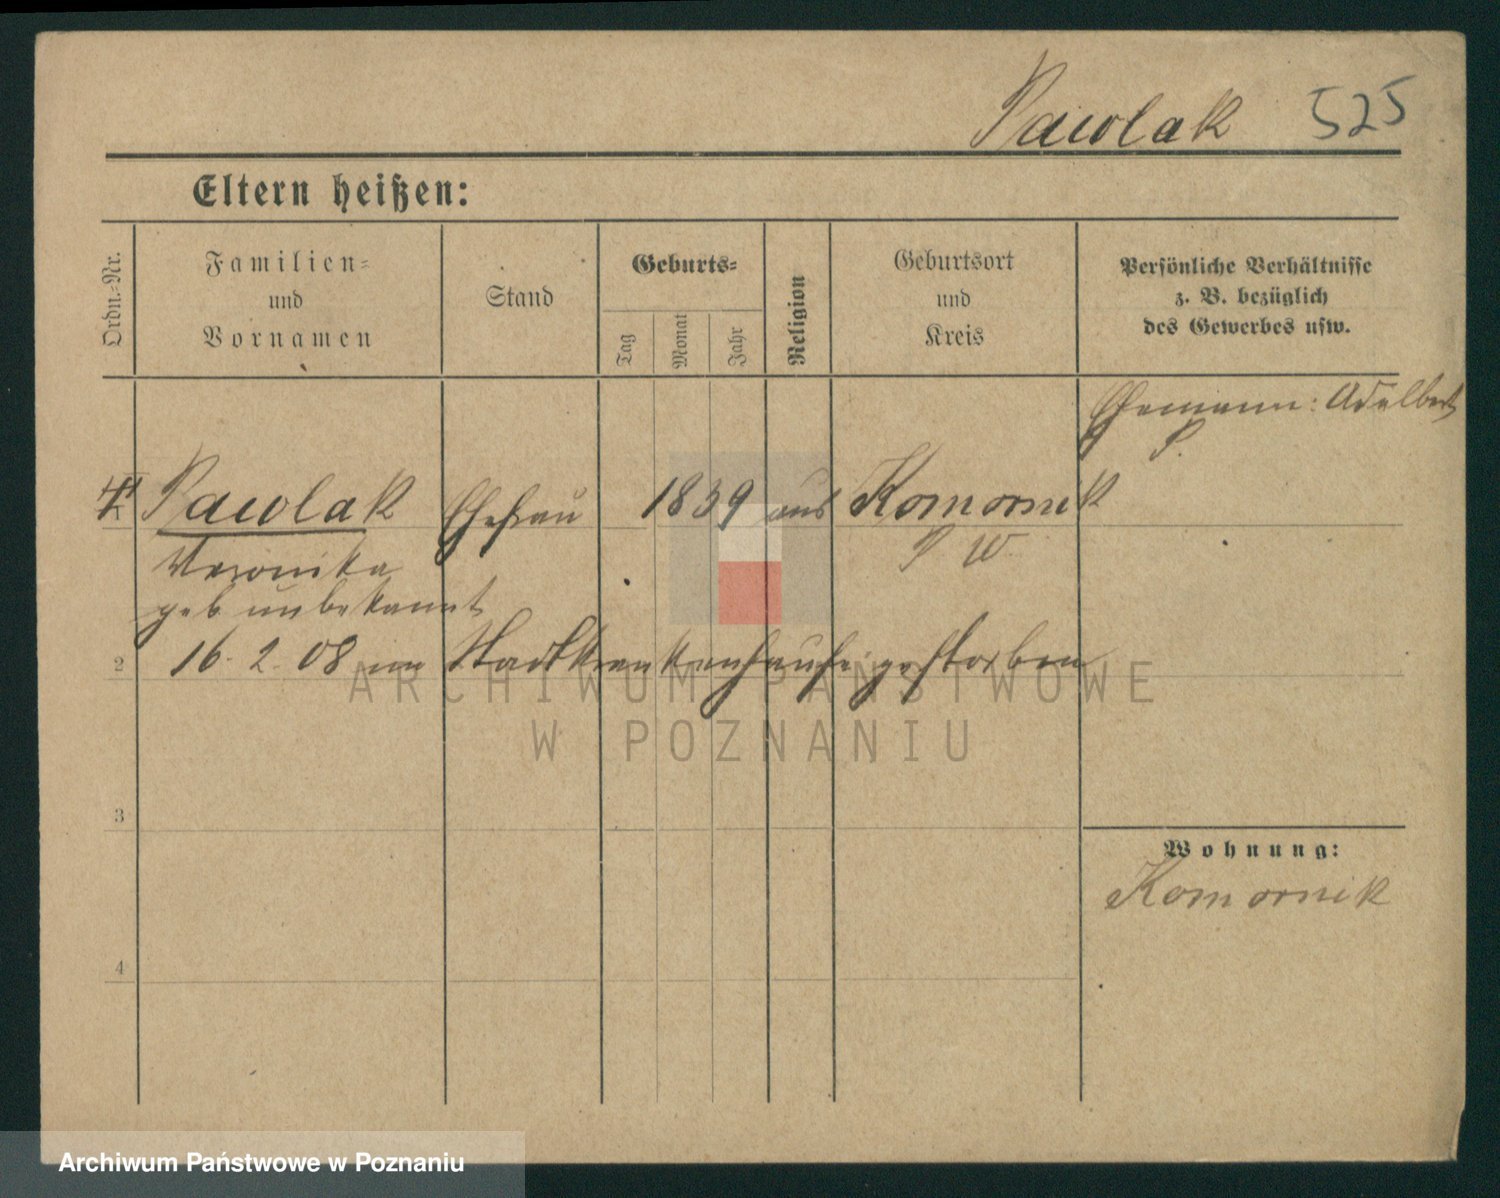 Pawlak 525
Eltern heißen:
Ordn.-Nr.
Familien-
und
Vornamen
Stand
Geburts-
Tag
Monat
Jahr
Religion
Geburtsort
und
Kreis
Persönliche Verhältnisse
z. B. bezüglich
des Gewerbes usw.
Ehemann: Adalbert
P.
Pawlak Ehefrau 1839 aus Komornik
P W.
Veronika
geb. unbekannt
2 16. 2. 08 im Stadtkrankenhause gestorben
3
4
Wohnung:
Komornik
ARCHIWUM PAŃSTWOWE
W POZNANIU
Archiwum Państwowe w Poznaniu